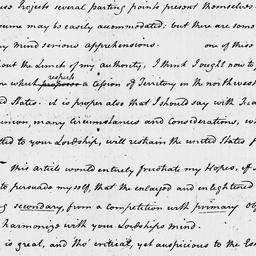 se Projets several parting points present themselves
sume may be easily accommodated; but there are some
y mind serious apprehensions. one of these
out the Limits of my authority, I think I ought now to
respects
re which a Cession of Territory in the northwest
ted States. it is proper also that I should say with
inion, many Circumstances and Considerations, wh
tted to your Lordship, will restrain the united States f
this article would entirely frustrate my Hopes, if
to persuade myself, that the enlarged and enlightened
ng secondary, from a competition with primary ob
harmonize with your Lordships mind.
is great, and tho' critical, yet auspicious to the Es